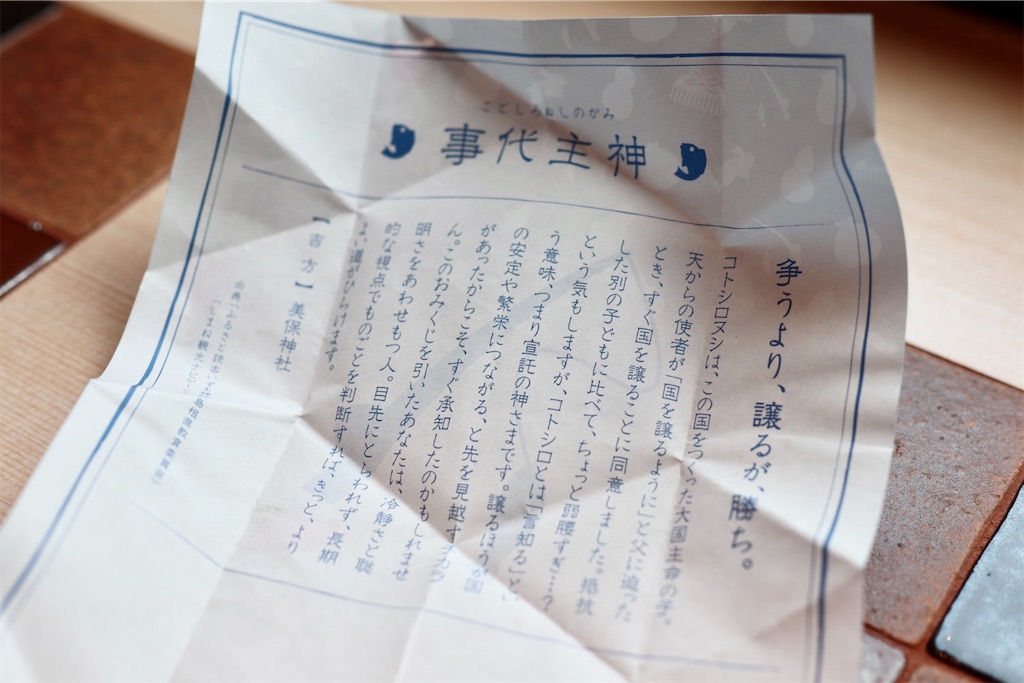 ことしろぬしのかみ
事代主神
争うより、譲るが、勝ち。
コトシロヌシは、この国をつくった大国主命の子。
天からの使者が「国を譲るように」と父に迫った
とき、すぐ国を譲ることに同意しました。抵抗
した別の子どもに比べて、ちょっと弱腰すぎ…?
という気もしますが、コトシロとは「言知る」と、
う意味、つまり宣託の神さまです。譲るほうが国
の安定や繁栄につながる、と先を見越すチカラ
があったからこそ、すぐ承知したのかもしれませ
ん。このおみくじを引いたあなたは、冷静さと聡
明さをあわせもつ人。目先にとらわれず、長期
的な視点でものごとを判断すれば、きっと、より
よい道がひらけます。
【吉方】美保神社
出典「ふるさと読本」 島根県教育委員会
「しまね観光ナビ」